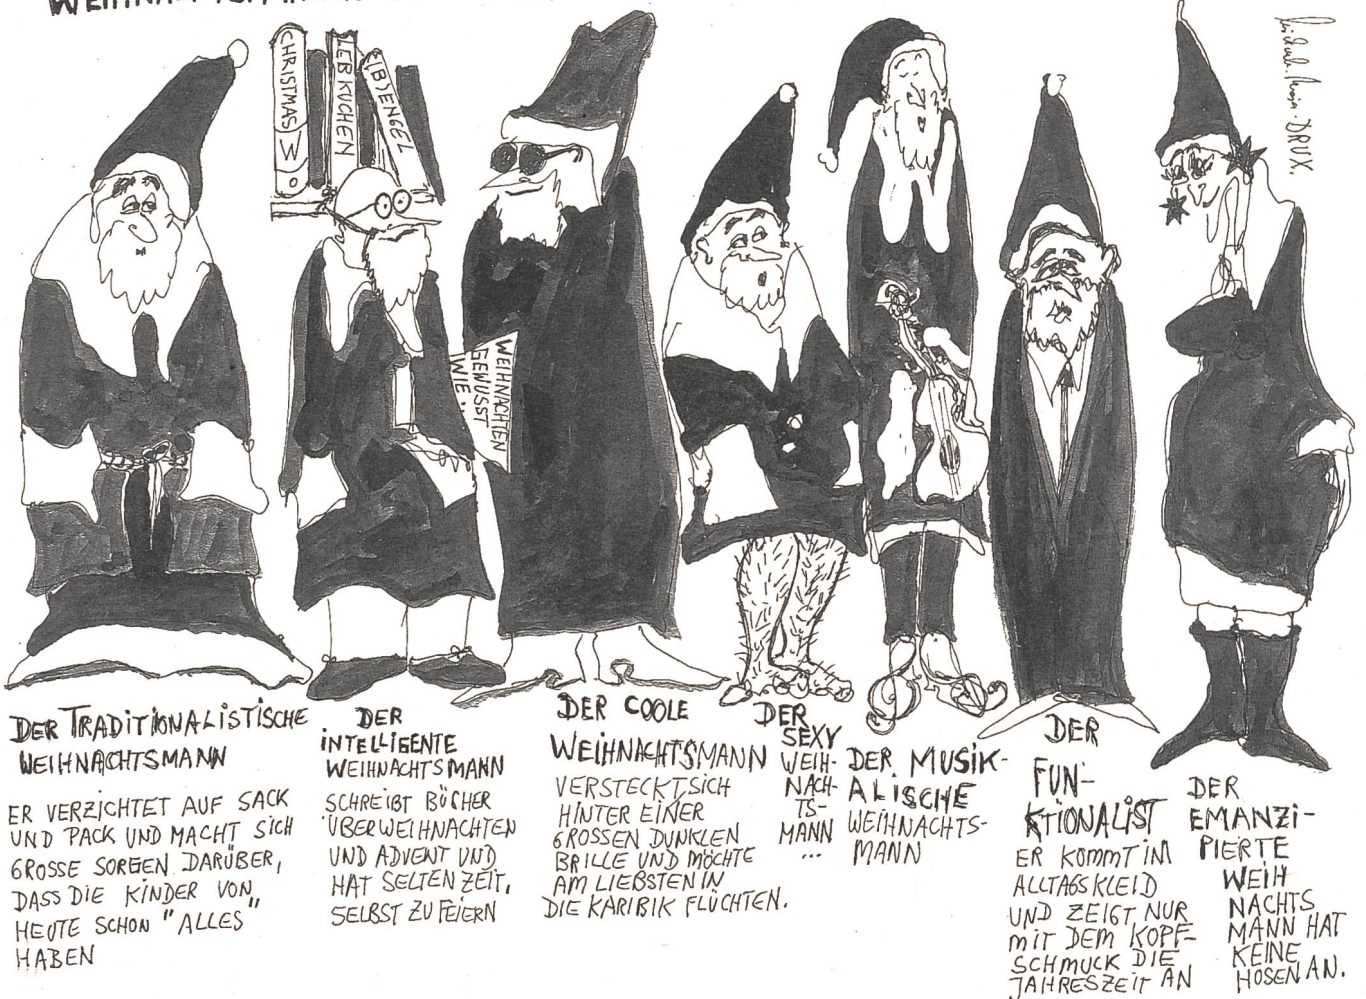 CHRISTMAS
LEBKUCHEN
(B)ENGEL
DRUX.
WEIHNACHTEN
GEWUSST
WIE
DER TRADITIONALISTISCHE
WEIHNACHTSMANN
ER VERZICHTET AUF SACK
UND PACK UND MACHT SICH
GROSSE SORGEN DARÜBER,
DASS DIE KINDER VON
HEUTE SCHON "ALLES"
HABEN
DER
INTELLIGENTE
WEIHNACHTSMANN
SCHREIBT BÜCHER
ÜBER WEIHNACHTEN
UND ADVENT UND
HAT SELTEN ZEIT,
SELBST ZU FEIERN
DER COOLE
WEIHNACHTSMANN
VERSTECKT SICH
HINTER EINER
GROSSEN DUNKLEN
BRILLE UND MÖCHTE
AM LIEBSTEN IN
DIE KARIBIK FLÜCHTEN.
DER
SEXY
WEIH-
NACH-
TS-
MANN
...
DER MUSIK-
ALISCHE
WEIHNACHTS-
MANN
DER
FUN-
KTIONALIST
ER KOMMT IM
ALLTAGSKLEID
UND ZEIGT NUR
MIT DEM KOPF-
SCHMUCK DIE
JAHRESZEIT AN
DER
EMANZI-
PIERTE
WEIH
NACHTS
MANN HAT
KEINE
HOSEN AN.